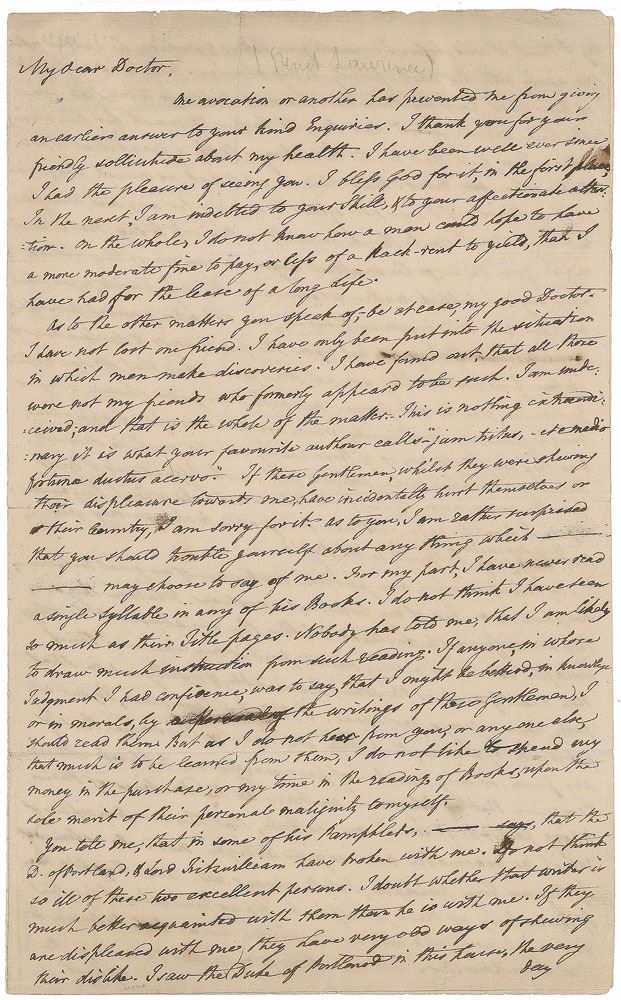 (French Laurence)
My dear Doctor,
One avocation or another has prevented me from giving
an earlier answer to your kind Enquiries. I thank you for your
friendly sollicitude about my health. I have been well ever since
I had the pleasure of seeing you. I bless God for it, in the first place;
In the next, I am indebted to your Skill, & to your affectionate atten:
:tion. On the whole, I do not know how a man could hope to have
a more moderate fine to pay, or less of a Rack-rent to yield, than I
have had for the lease of a long Life.
As to the other matters you speak of,- be at ease, my good Doctor-
I have not lost one friend. I have only been put into the situation
in which men make discoveries. I have found out, that all those
were not my friends who formerly appeard to be such. I am unde:
:ceived; and that is the whole of the matter.- This is nothing extraordi:
:nary it is what your favourite authour calls- "jam tritus, et e medio
fortunæ ductus acervo." If these Gentlemen, whilst they were shewing
their displeasure towards me, have incidentally hurt themselves or
their Country, I am sorry for it. as to you, I am rather surprised
that you should trouble yourself about any thing which ———
——— may choose to say of me. For my part, I have never read
a single syllable in any of his Books. I do not think I have seen
so much as their Title pages. Nobody has told me, that I am likely
to draw much instruction from such reading. If anyone, in whose
Judgment I had confidence, was to say, that I might be betterd, in knowledge
or in morals, by the writings of these Gentlemen, I
should read them. But as I do not hear from you, or any one else,
that much is to be learned from them, I do not like to spend my
money in the purchase, or my time in the reading of Books, upon the
sole merit of their personal malignity to myself.
You tell me, that in some of his Pamphlets, —— says, that the
D. of Portland, & Lord Fitzwilliam have broken with me. I do not think
so ill of these two excellent persons. I doubt whether that writer is
much better acquainted with them than he is with me. If they
are displeased with me, they have very odd ways of shewing
their dislike. I saw the Duke of Portland in this house, the very
day